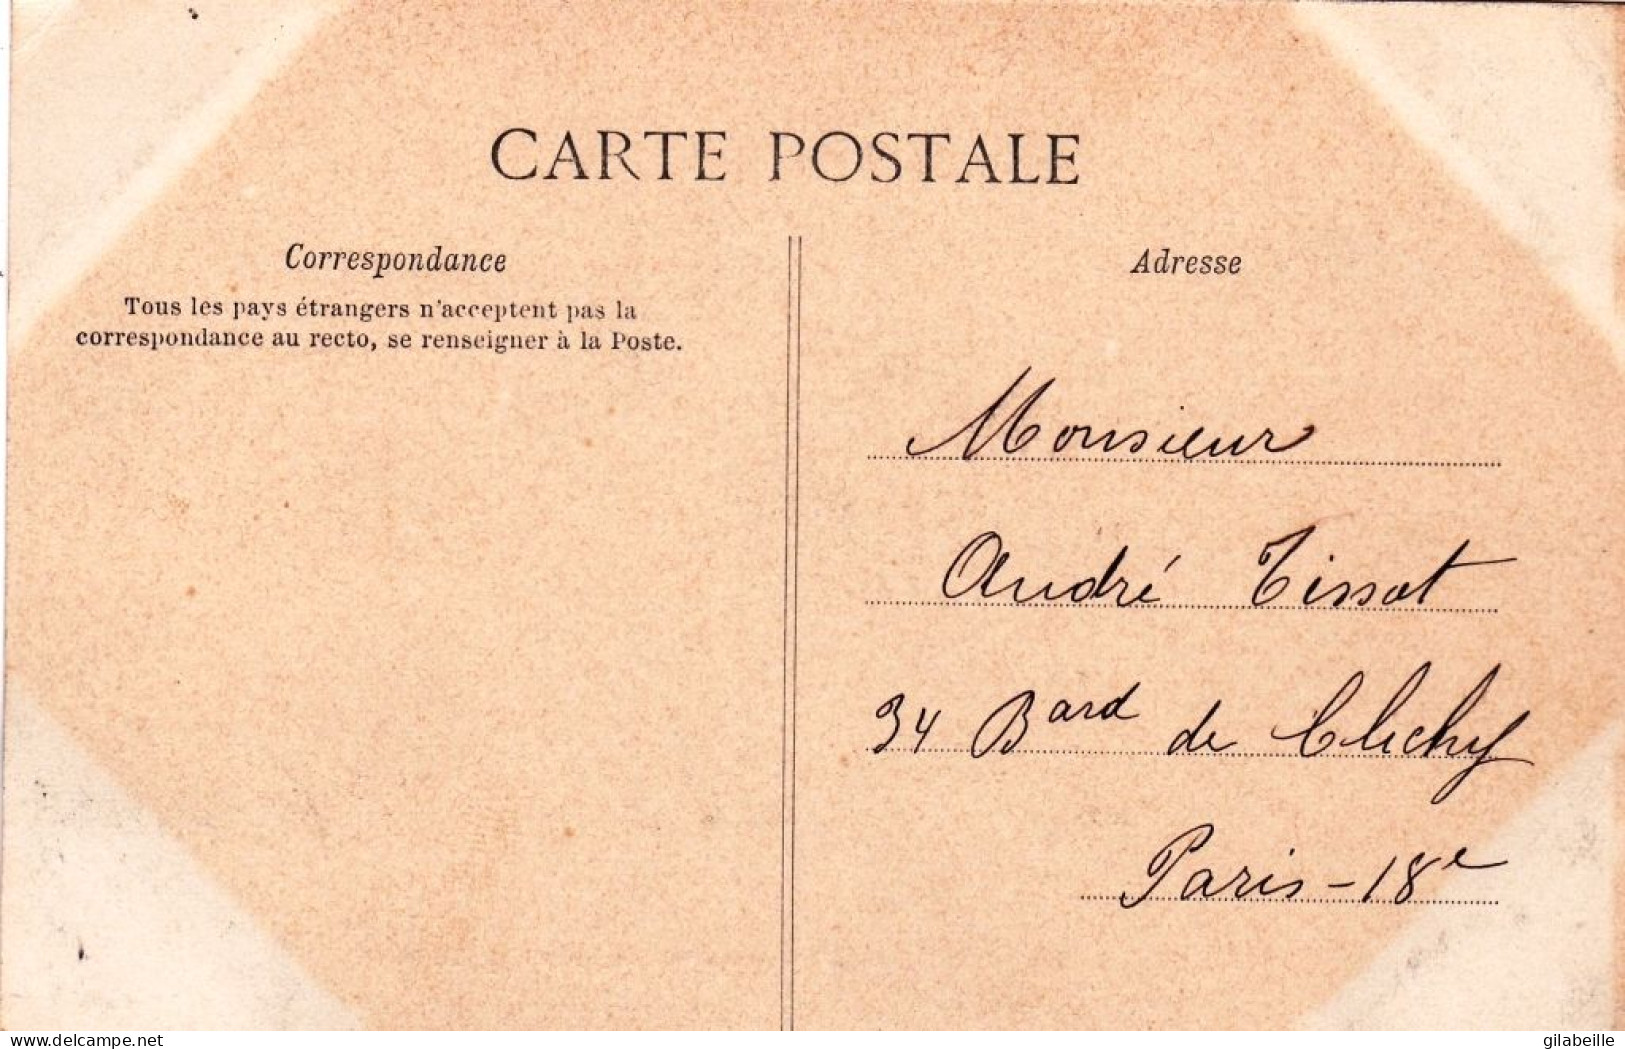 CARTE POSTALE
Correspondance
Tous les pays étrangers n'acceptent pas la
correspondance au recto, se renseigner à la Poste.
Adresse
Monsieur
André Tissot
34 Bard de Clichy
Paris - 18e
www.delcampe.net
gilabeille